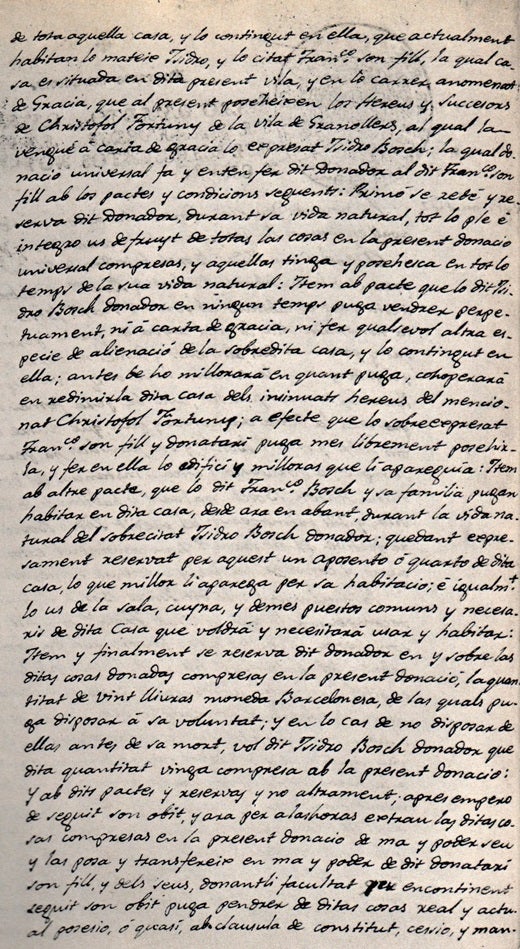 de tota aquella casa, y lo contingut en ella, que actualment
habitan lo mateix Isidro, y lo citat Fran.co son fill, la qual ca-
sa es situada en dita present vila, y en lo carrer anomenat
de Gracia, que al present poseheixen los Hereus y successors
de Christofol Fortuny de la vila de Granollers, al qual la
vengué á carta de gracia lo expresat Isidro Bosch; la qual do-
nacio universal fa y enten fer dit donador al dit Fran.co son
fill ab los pactes y condicions seguents: Primó se reté y re-
serva dit Donador, durant sa vida natural, tot lo ple é
integro us defruyt de totas las cosas en la present donacio
universal compresas, y aquellas tinga y posehesca en tot lo
temps de la sua vida natural: Item ab pacte que lo dit Isi-
dro Bosch donador en ningun temps puga vendrer perpe-
tuament, ni á carta de gracia, ni fer qualsevol altra es-
pecie de alienació de la sobredita casa, y lo contingut en
ella; antes be ho millorará en quant puga, cohoperará
en redimirla dita casa dels insinuats hereus del mencio-
nat Christofol Fortuny; a efecte que lo sobreexpresat
Fran.co son fill y donatari puga mes librement posehir-
la, y fer en ella lo edifici y milloras que li aparequia: Item
ab altre pacte, que lo dit Fran.co Bosch y sa familia pugan
habitar en dita casa, desde ara en abant, durant la vida na-
tural del sobrecitat Isidro Bosch donador; quedant expre-
sament reservat per aquest un aposento ó quarto de dita
casa, lo que millor li aparega per sa habitacio; é igualmt
lo us de la sala, cuyna, y demes puestos comuns y necesa-
ris de dita Casa que voldrá y necesitará usar y habitar:
Item y finalment se reserva dit donador en y sobre las
ditas cosas donadas compresas en la present donació, la quan-
titat de vint lliuras moneda Barcelonesa, de las quals pu-
ga disposar á sa voluntat; y en lo cas de no disposar de
ellas antes de sa mort, vol dit Isidro Bosch donador que
dita quantitat vinga compresa ab la present donacio:
Y ab dits pactes y reservas y no altrament, apres empero
de seguit son obit, y ara per alashoras extrau las ditas co-
sas compresas en la present donacio de ma y poder seu
y las posa y transfereix en ma y poder de dit donatari
son fill, y dels seus, donantli facultat per encontinent
seguit son obit puga pendrer de ditas cosas real y actu-
al posesio, ó quasi, ab clausula de constitut, cessio, y man-